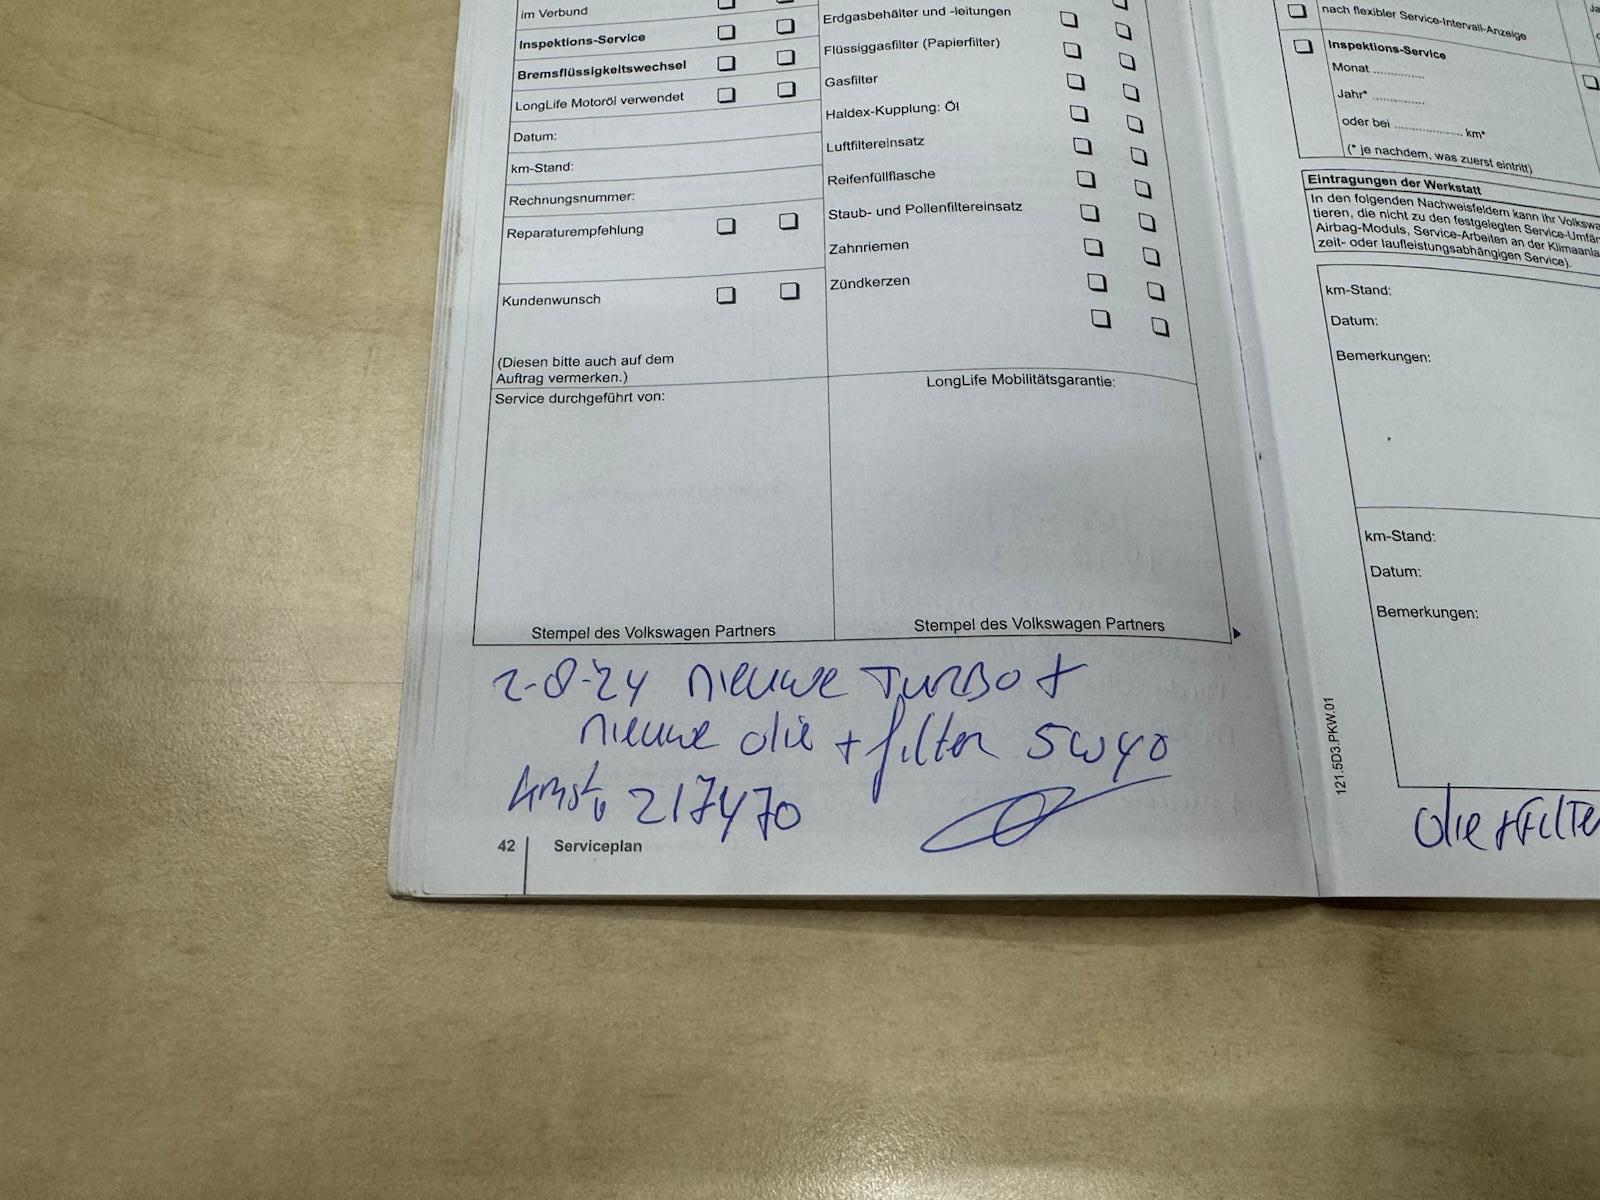 im Verbund
Inspektions-Service
Bremsflüssigkeitswechsel
LongLife Motoröl verwendet
Datum:
km-Stand:
Rechnungsnummer:
Reparaturempfehlung
Kundenwunsch
(Diesen bitte auch auf dem
Auftrag vermerken.)
Service durchgeführt von:
Stempel des Volkswagen Partners
Erdgasbehälter und -leitungen
Flüssiggasfilter (Papierfilter)
Gasfilter
Haldex-Kupplung: Öl
Luftfiltereinsatz
Reifenfüllflasche
Staub- und Pollenfiltereinsatz
Zahnriemen
Zündkerzen
LongLife Mobilitätsgarantie:
Stempel des Volkswagen Partners
2-8-'24 nieuwe Turbo +
nieuwe olie + filter 5w40
kmst. 217470
42 Serviceplan
nach flexibler Service-Intervall-Anzeige
Inspektions-Service
Monat ..............
Jahr* ..............
oder bei .................... km*
(* je nachdem, was zuerst eintritt)
Eintragungen der Werkstatt
In den folgenden Nachweisfeldern kann Ihr Volkswa
tieren, die nicht zu den festgelegten Service-Umfän
Airbag-Moduls, Service-Arbeiten an der Klimaanla
zeit- oder laufleistungsabhängigen Service).
km-Stand:
Datum:
Bemerkungen:
km-Stand:
Datum:
Bemerkungen:
121.5D3.PKW.01
olie + Filte